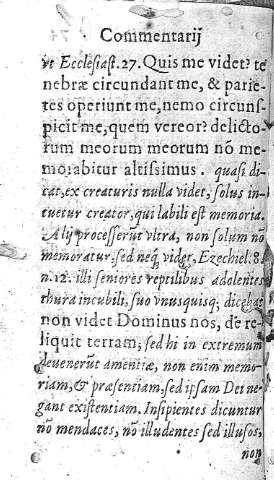 Commentarij
vt Ecclesiast. 27. Quis me videt? te
nebræ circundant me, & parie-
tes operiunt me, nemo circuns-
picit me, quem vereor? delicto-
rum meorum meorum nō me-
morabitur altissimus. quasi di
cat, ex creaturis nulla videt, solus in-
tuetur creator, qui labili est memoria.
Alij processerūt vltra, non solum nō
memoratur. sed neq; videt, Ezechiel. 8.
n. 12. illi seniores reptilibus adolentes
thura incubili, suo vnusquisq; dicebat
non videt Dominus nos, dere-
liquit terram, sed hi in extremum
deuenerūt amentiæ, non enim memo-
riam, & præsentiam, sed ipsam Dei ne-
gant existentiam. Insipientes dicuntur
nō mendaces, nō illudentes sed illusos,
non